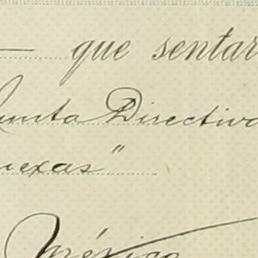 que sentar
Junta Directiva
nexas"
México